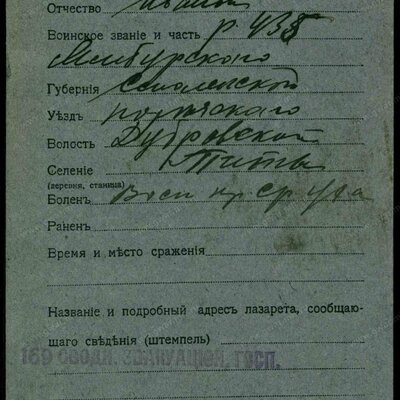 Отчество Иванъ
Воинское званіе и часть р. 435
Ямбургского
Губернія Смоленской
Уѣздъ
Волость Дубровской
Селеніе Титы
(деревня, станица)
Боленъ Восп
Раненъ
Время и мѣсто сраженія
Названіе и подробный адресъ лазарета, сообщаю-
щаго свѣдѣнія (штемпель)
169 СВОДН. ЭВАКУАЦІОН. ГОСП.